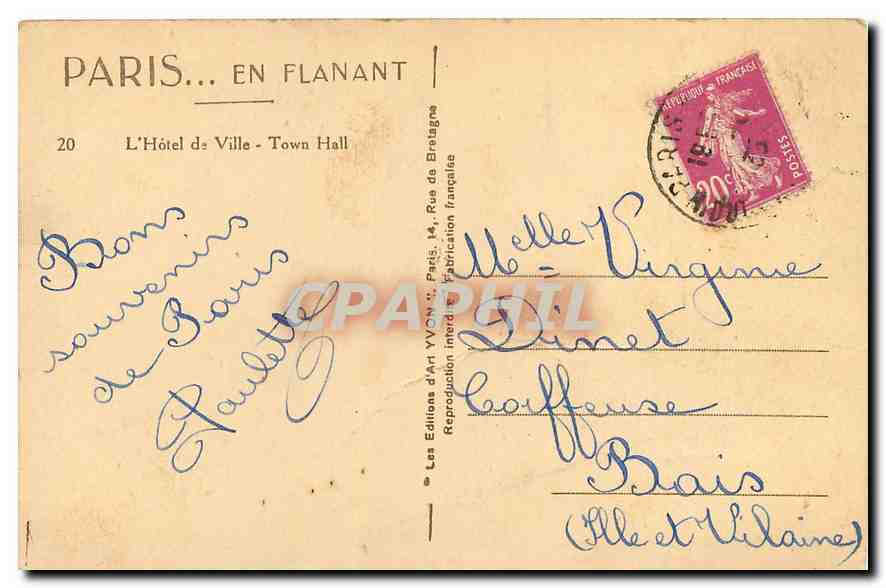 PARIS... EN FLANANT
20 L'Hôtel de Ville - Town Hall
Bons
souvenirs
de Paris
Paulette
Les Editions d'Art YVON", Paris, 14, Rue de Bretagne
Reproduction interdite Fabrication française
REPUBLIQUE FRANÇAISE
20c
POSTES
PARIS
18
Melle Virginie
Dinet
Coiffeuse
Bais
(Ille et Vilaine)
CPAPHIL